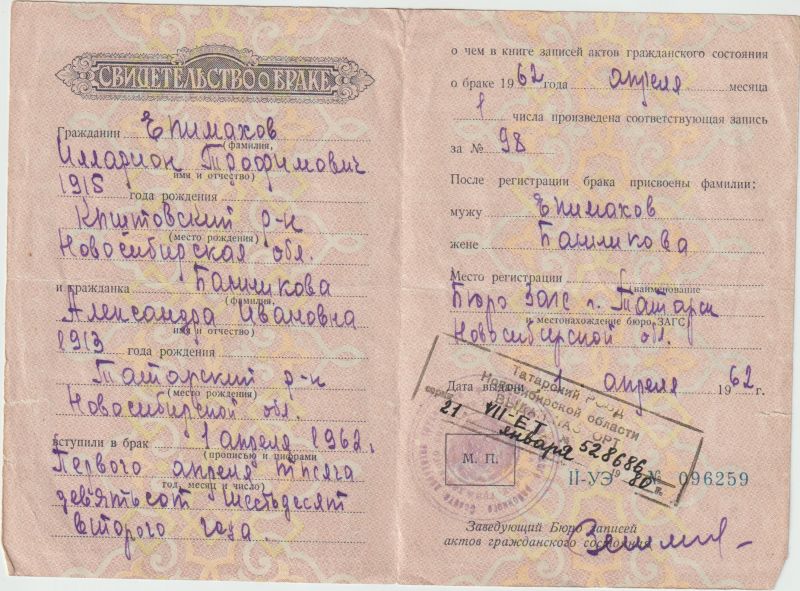 СВИДЕТЕЛЬСТВО О БРАКЕ
Гражданин Епимахов
(фамилия,
Илларион Трофимович
имя и отчество)
1915 года рождения
Кыштовский р-н
(место рождения)
Новосибирская обл.
и гражданка Башликова
(фамилия,
Александра Ивановна
имя и отчество)
1913 года рождения
Татарский р-н
(место рождения)
Новосибирской обл.
вступили в брак 1 апреля 1962.
(прописью и цифрами
Первого апреля тысяча
год, месяц и число)
девятьсот шестьдесят
второго года.
о чем в книге записей актов гражданского состояния
о браке 1962 года апреля месяца
1 числа произведена соответствующая запись
за № 98
После регистрации брака присвоены фамилии:
мужу Епимахов
жене Башликова
Место регистрации
(наименование
Бюро ЗАГС г. Татарск
и местонахождение бюро ЗАГС)
Новосибирской обл.
Дата выдачи 1 апреля 1962 г.
Татарский РОВД
Новосибирской области
ВЫДАН ПАСПОРТ
серия VII-ЕТ № 528686
21 января 1980 г.
М. П.
II-УЭ № 096259
Заведующий Бюро записей
актов гражданского состояния